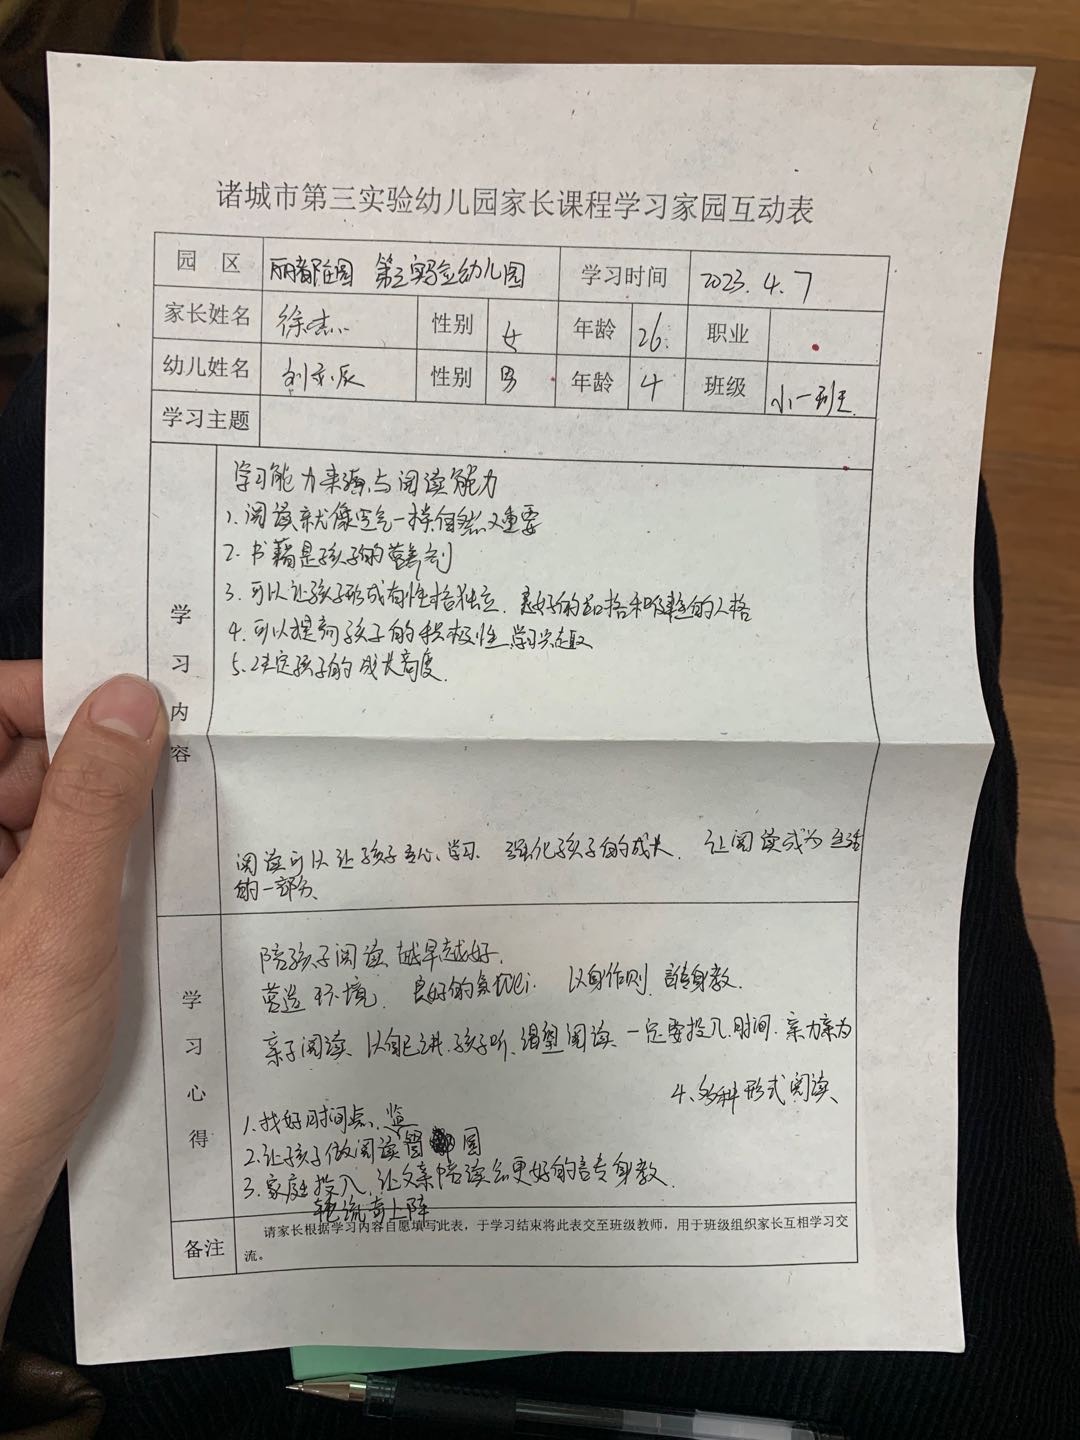 诸城市第三实验幼儿园家长课程学习家园互动表
园 区 丽都花园 第三实验幼儿园 学习时间 2023.4.7
家长姓名 徐杰 性别 女 年龄 26 职业
幼儿姓名 刘辰 性别 男 年龄 4 班级 小一班
学习主题
学习内容
学习能力来源与阅读能力
1、阅读就像空气一样自然又重要
2、书籍是孩子的营养剂
3、可以让孩子形成有性格独立、良好的和的人格
4、可以提高孩子的积极性、学习兴趣
5、决定孩子的成长高度
阅读可以让孩子专心学习、强化孩子的成长、让阅读成为生活
的一部分、
学习心得
陪孩子阅读越早越好
营造环境、良好的 以身作则、言传身教
亲子阅读、以自己讲、孩子听、渴望阅读、一定要投入时间、亲力亲为
4、多种形式阅读
1、找好时间点、
2、让孩子做阅读
3、家庭投入、让父亲陪读会更好的言传身教
轮流着上阵
备注 请家长根据学习内容自愿填写此表，于学习结束将此表交至班级教师，用于班级组织家长互相学习交
流。